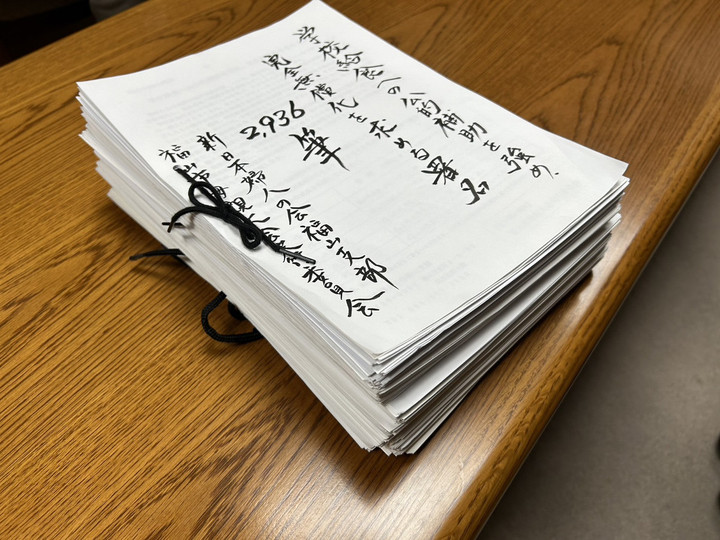 学校給食への公的補助を強め、
完全無償化を求める署名
2,936筆
新日本婦人の会福山支部
福山市母親大会実行委員会